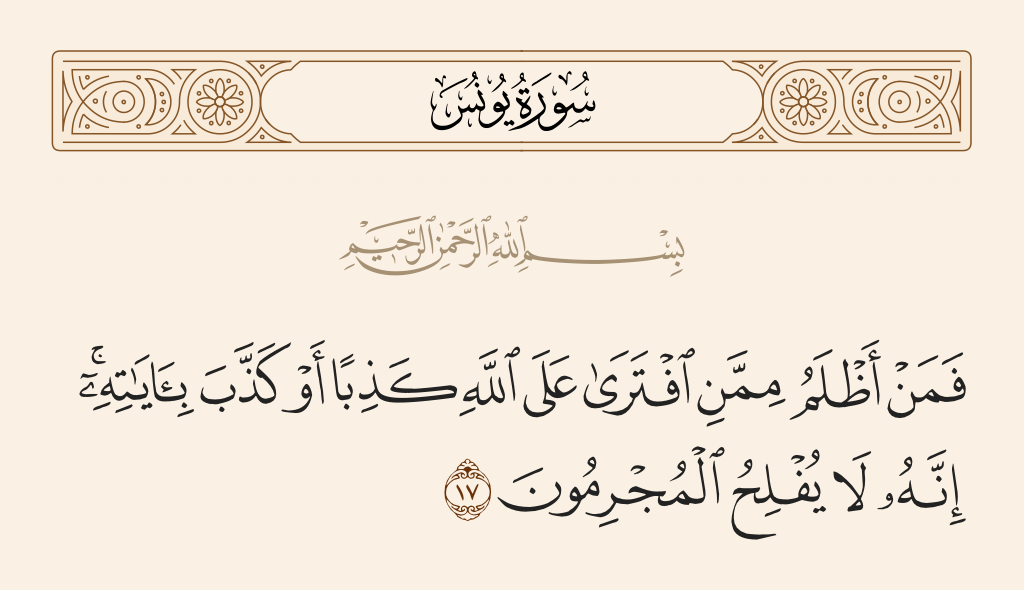 سُورَةُ يُونُسَ
بِسْمِ ٱللَّهِ ٱلرَّحْمَٰنِ ٱلرَّحِيمِ
فَمَنْ أَظْلَمُ مِمَّنِ ٱفْتَرَىٰ عَلَى ٱللَّهِ كَذِبًا أَوْ كَذَّبَ بِـَٔايَـٰتِهِۦٓ ۚ
إِنَّهُۥ لَا يُفْلِحُ ٱلْمُجْرِمُونَ ١٧